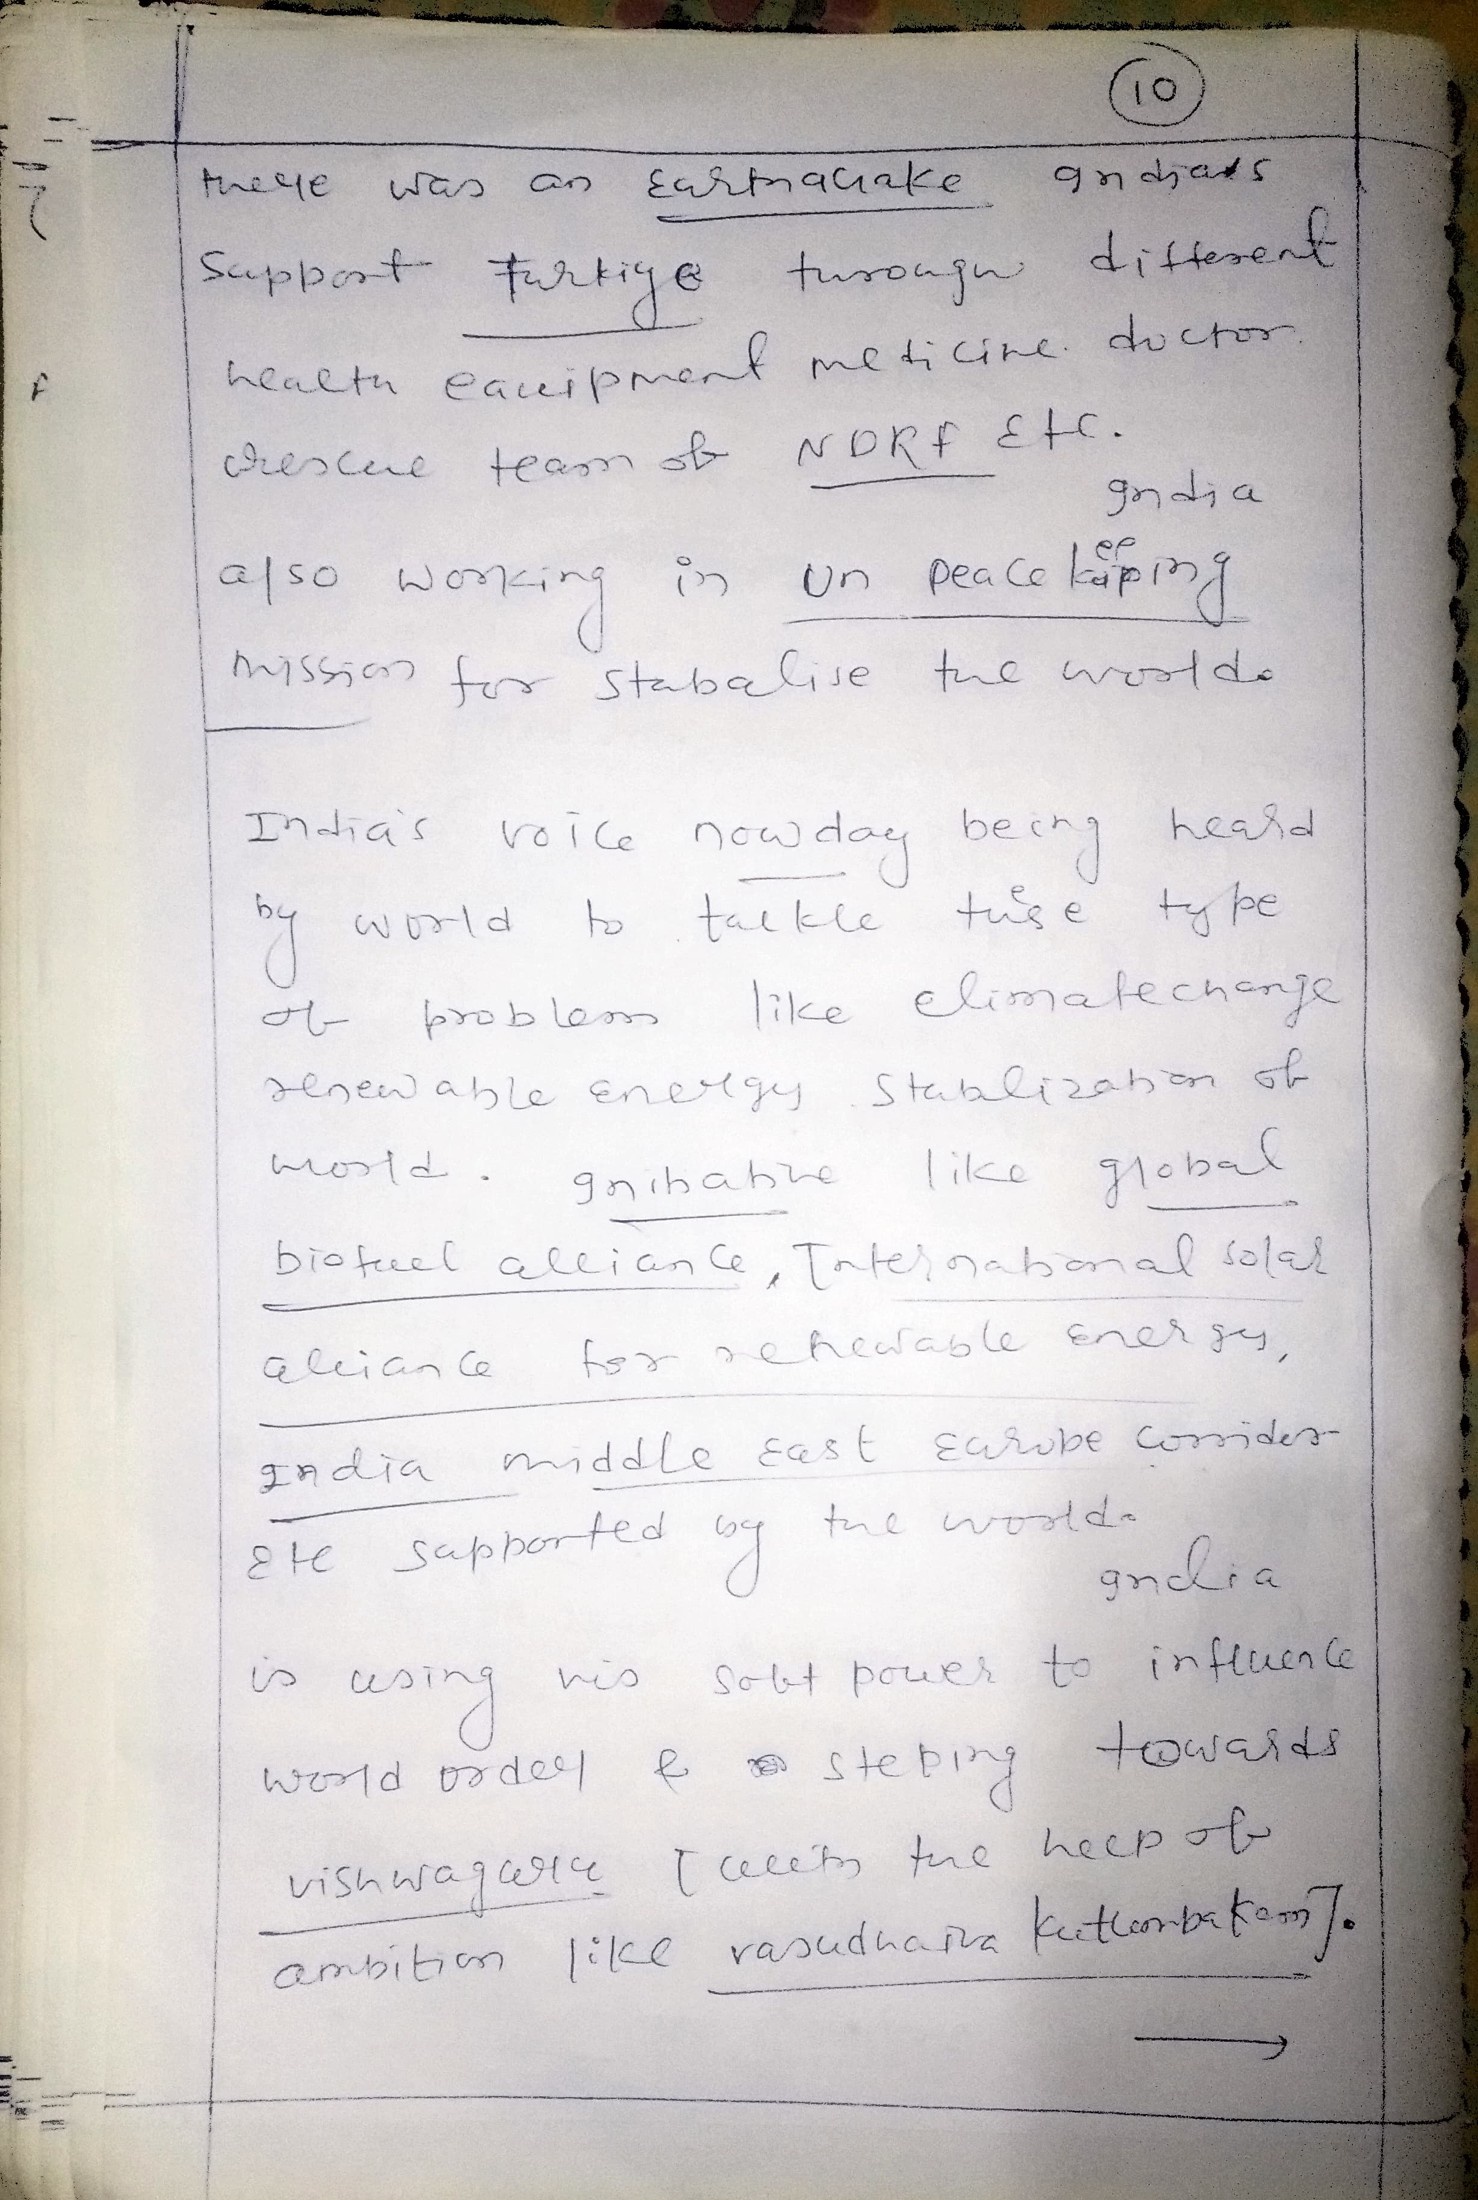 10
there was an Earthquake Indians
Support Turkiye through different
health equipment medicine doctor
rescue team of NDRF Etc.
India
also working in Un peace keeping
mission for stabalise the world.
India's voice nowday being heard
by world to tackle these type
of problem like climatechange
renewable energy stablization of
world. Initiative like global
biofuel alliance, International solar
alliance for renewable energy,
India middle East Europe corridor
Etc supported by the world.
India
is using his soft power to influence
world order & steping towards
vishwaguru [with the help of
ambition like vasudhaiva kutumbakam].
→